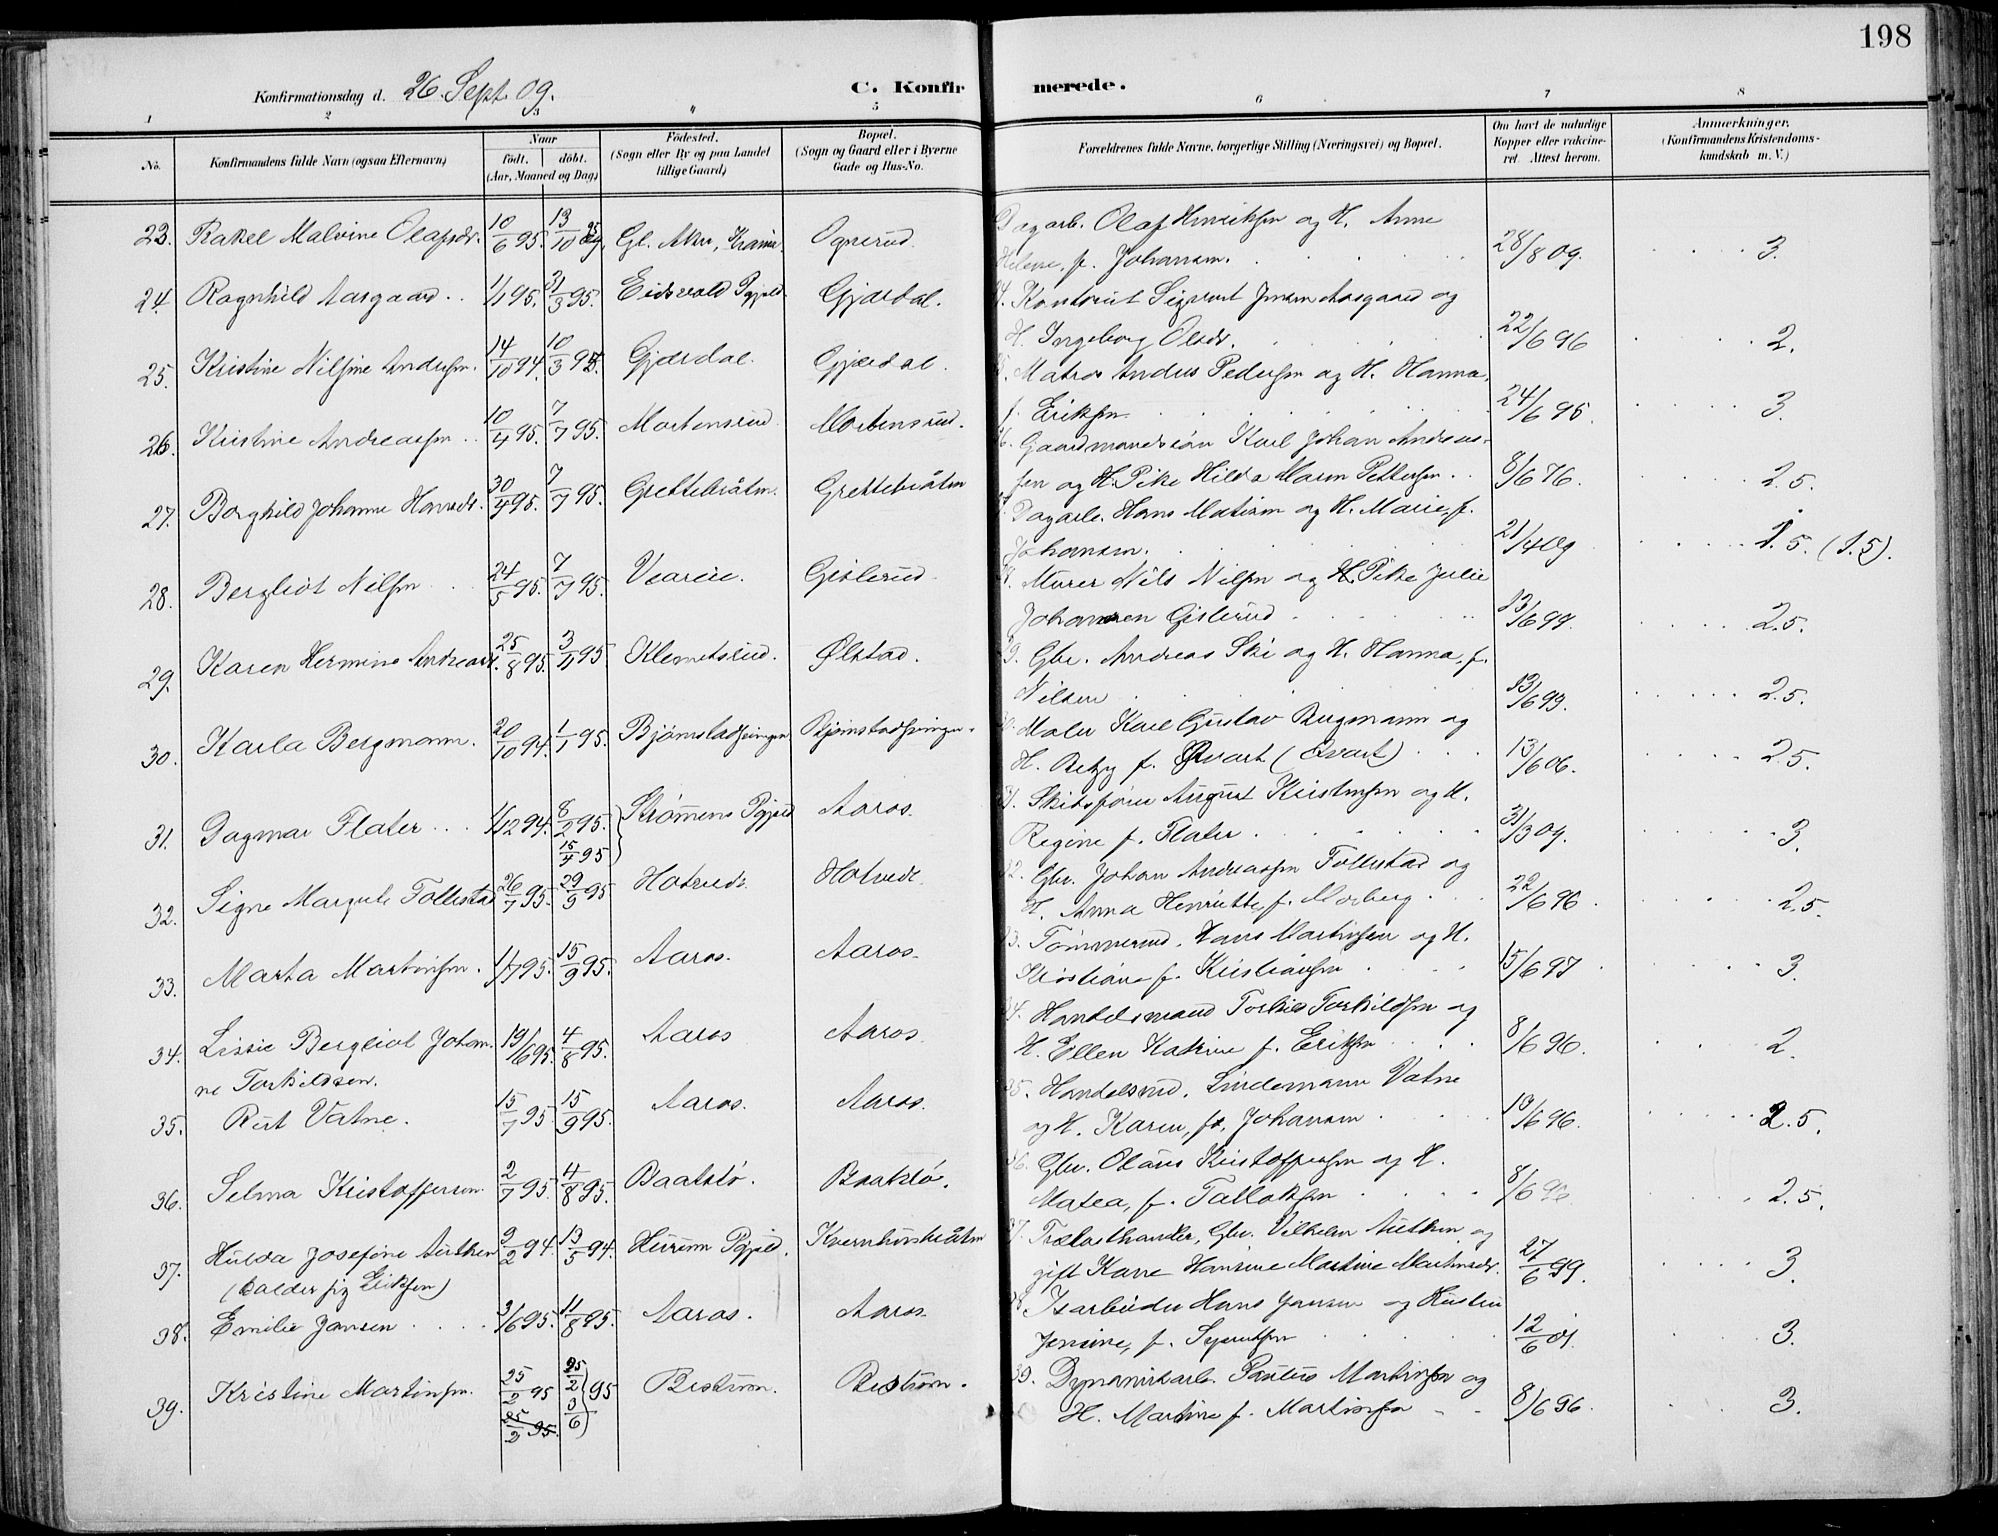 198
Konfirmationsdag d. 26. Sept. 09.
C. Konfirmerede.
1 2 3 4 5 6 7 8
No.
Konfirmandens fulde Navn (ogsaa Efternavn)
Naar
födt. döbt.
(Aar, Maaned og Dag)
Födested.
(Sogn eller By og paa Landet
tillige Gaard)
Bopæl.
(Sogn og Gaard eller i Byerne
Gade og Hus-No.
Forældrenes fulde Navne, borgerlige Stilling (Næringsvei) og Bopæl.
Om havt de naturlige
Kopper eller vakcine-
ret. Attest herom.
Anmærkninger.
(Konfirmandens Kristendoms-
kundskab m. V.)
23. Rakel Malvine Olafsdr. 10/6 95. 13/10 95 Gl. Aker, Ognerud. Dagarb. Olaf Henriksen og H. Anne
Helene, f. Johansen. 28/8 09. 3.
24. Ragnhild Aasgaard 1/1 95. 31/3 95. Eidsvold Pgjeld. Gjærdal. Kontorist Sigvart Jensen Aasgaard og
H. Ingeborg Olsdr. 22/6 96 2.
25. Kristine Nilsine Andersen. 14/10 94. 10/3 95. Gjærdal. Gjærdal. Matros Anders Pedersen og H. Hanna,
f. Eriksen 24/6 95. 3.
26. Kristine Andreassen 10/4 95. 7/7 95. Mortensrud Mortensrud. Gaardmandssön Karl Johan Andreas-
sen og H. Pike Hilda Maren Pettersen. 8/6 76. 2.5.
27. Borghild Johanne Hansdr. 30/4 95. 7/7 95. Grettebråten. Grettebråten Dagarb. Hans Matisen og H. Marie, f.
Johansen. 21/4 09 1.5. (1.5).
28. Bergliot Nilsen 24/5 95. 7/7 95. Veareie. Gislerud. Murer Nils Nilsen og H. Pike Julie
Johansen Gislerud 13/6 99. 2.5.
29. Karen Hermine Andreasdr. 25/8 95. 3/11 95. Klemetsrud. Ølstad. Gbr. Andreas Ski og H. Hanna, f.
Nilsen 13/6 99. 2.5.
30. Karla Bergmann. 20/10 94. 1/1 95. Björnstadsvingen Björnstadsvingen. Maler Karl Gustav Bergmann og
H. Betzy f. Qvart (Qvart) 13/6 06. 2.5.
31. Dagmar Flater 1/12 94. 8/2 95. Strömmens Pgjeld Aaros. Skibsförer August Kristensen og H.
15/4 95
Regine f. Flater 31/3 09. 3.
32. Signe Margrete Follestad 26/7 95. 29/9 95 Hotvedt. Hotvedt. Gbr. Johan Andreassen Follestad og
H. Anna Henriette f. Morberg 22/6 96 2.5.
33. Marta Martinsen. 1/7 95. 15/9 95. Aaros. Aaros. Tömmermd. Hans Martinsen og H.
Kristiane f. Kristiansen 15/6 97 3.
34. Lissie Bergliot Johan- 19/6 95. 4/8 95. Aaros Aaros. Handelsmand Torkild Torkildsen og
ne Torkildsen. H. Ellen Katrine f. Eriksen 8/6 96. 2.
35. Rut Vatne. 15/7 95 15/9 95. Aaros. Aaros. Handelsmd. Lindemann Vatne
og H. Karen, f. Johansen 10/6 96. 2.5.
36. Selma Kristoffersen 2/7 95 4/8 95. Baatstö. Baatstö. Gbr. Olaus Kristoffersen og H.
Matea, f. Tallaksen 8/6 96 2.5.
37. Hulda Josefine Autken 9/2 94. 13/5 94. Hurum Pgjeld. Kvernhusbråten Trælasthandler, Gbr. Vilhelm Autken og
(kalder sig Eriksen) gift Karre Hansine Martine Martinsdr. 27/6 99. 3.
38. Emilie Jansen 3/6 95. 11/8 95. Aaros. Aaros. Isarbeider Hans Jansen og Hustru
Jensine, f. Syversen 12/6 01. 3.
39. Kristine Martinsen. 25/2 95 25/2 3/6 95 Bestum. Bestum. Dynamitarb. Martinsen og
25/2 95.
H. Martine f. Martinsen 8/6 96. 3.